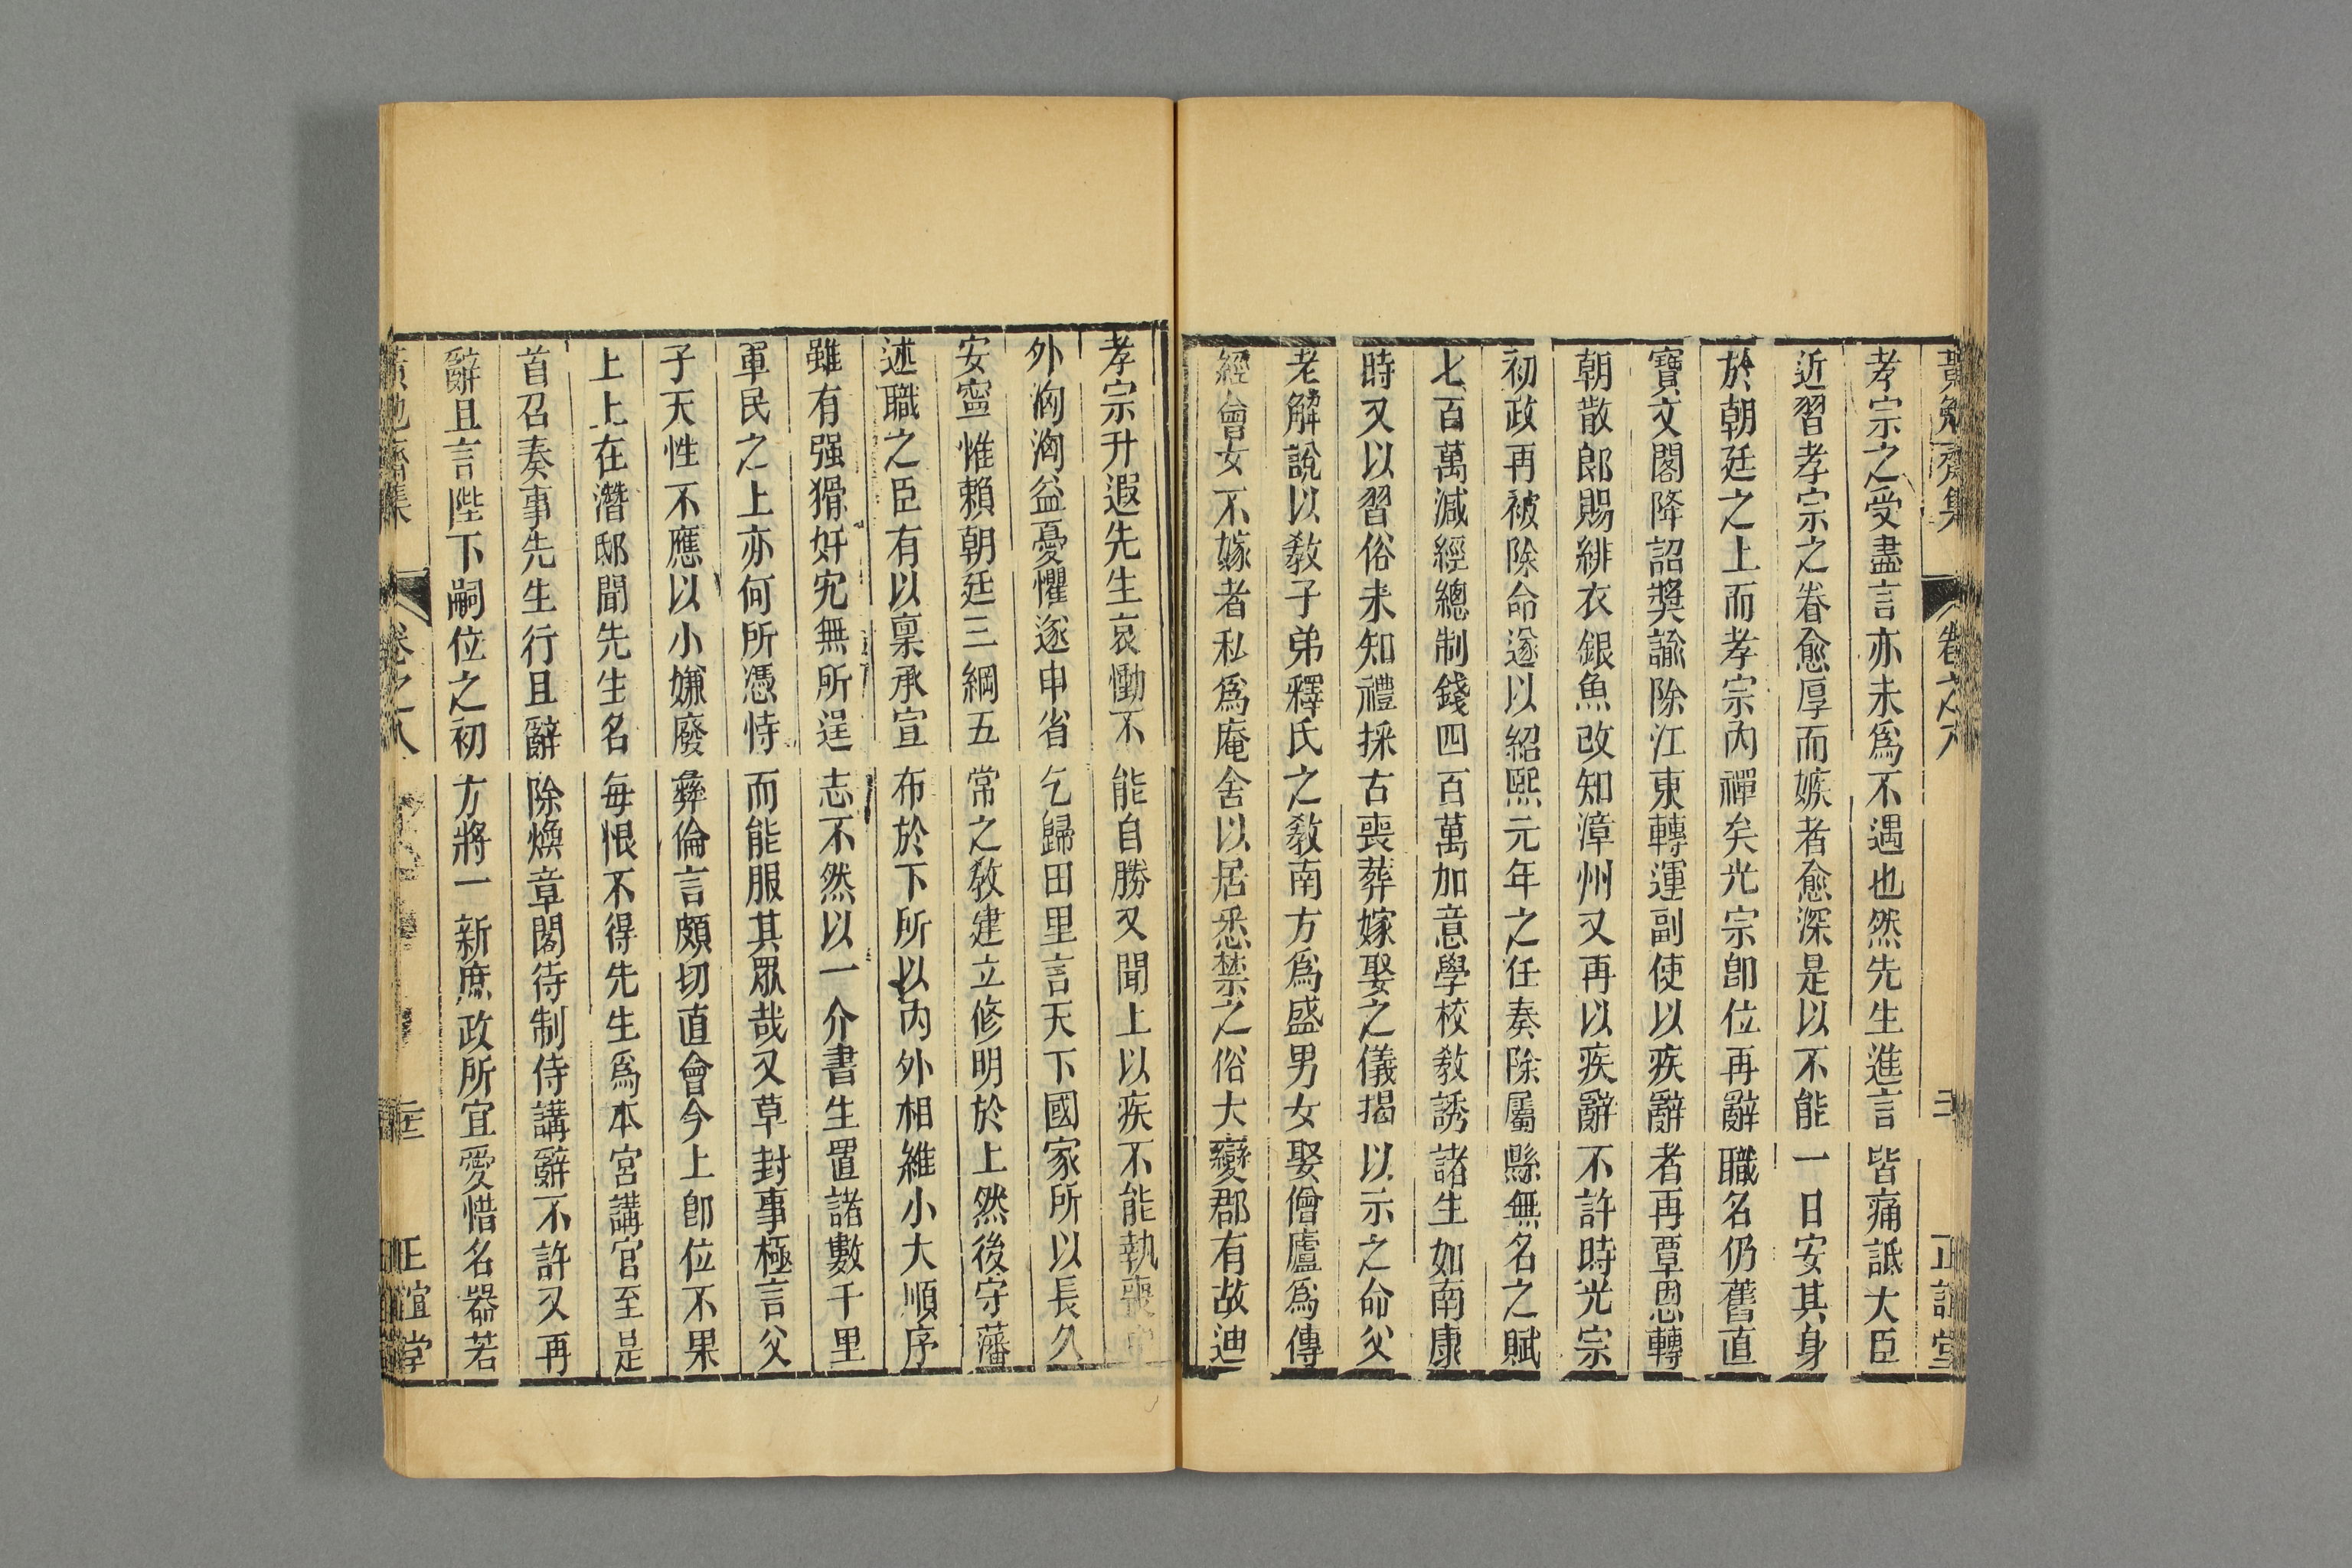 黃勉齋集 卷之八 三 正誼堂
孝宗之受盡言亦未爲不遇也然先生進言皆痛詆大臣
近習孝宗之眷愈厚而嫉者愈深是以不能一日安其身
於朝廷之上而孝宗內禪矣光宗卽位再辭職名仍舊直
寶文閣降詔奬諭除江東轉運副使以疾辭者再覃恩轉
朝散郎賜緋衣銀魚改知漳州又再以疾辭不許時光宗
初政再被除命遂以紹熙元年之任奏除屬縣無名之賦
七百萬減經總制錢四百萬加意學校敎誘諸生如南康
時又以習俗未知禮採古喪葬嫁娶之儀揭以示之命父
老解說以敎子弟釋氏之敎南方爲盛男女娶僧廬爲傳
經會女不嫁者私爲庵舍以居悉禁之俗大變郡有故迪
孝宗升遐先生哀慟不能自勝又聞上以疾不能執喪中
外洶洶益憂懼遂申省乞歸田里言天下國家所以長久
安寧惟賴朝廷三綱五常之敎建立修明於上然後守藩
述職之臣有以禀承宣布於下所以內外相維小大順序
雖有强猾奸宄無所逞志不然以一介書生置諸數千里
軍民之上亦何所憑恃而能服其眾哉又草封事極言父
子天性不應以小嫌廢彝倫言頗切直會今上卽位不果
上上在潛邸聞先生名每恨不得先生爲本宮講官至是
首召奏事先生行且辭除煥章閣待制侍講辭不許又再
辭且言陛下嗣位之初方將一新庶政所宜愛惜名器若
齋集 卷之八 正誼堂